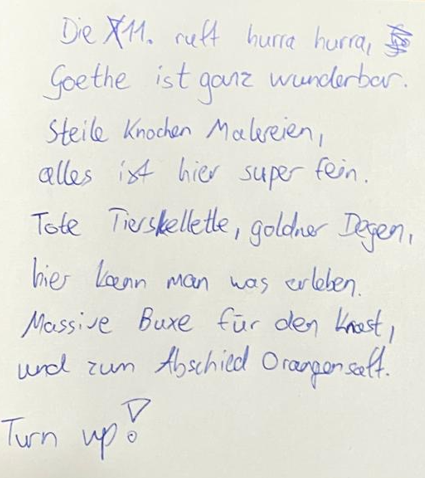 Die 11. ruft hurra hurra,
Goethe ist ganz wunderbar.
Steile Knochen Malereien,
alles ist hier super fein.
Tote Tierskellette, goldner Degen,
hier kann man was erleben.
Massive Buxe für den Knast,
und zum Abschied Orangensaft.
Turn up!